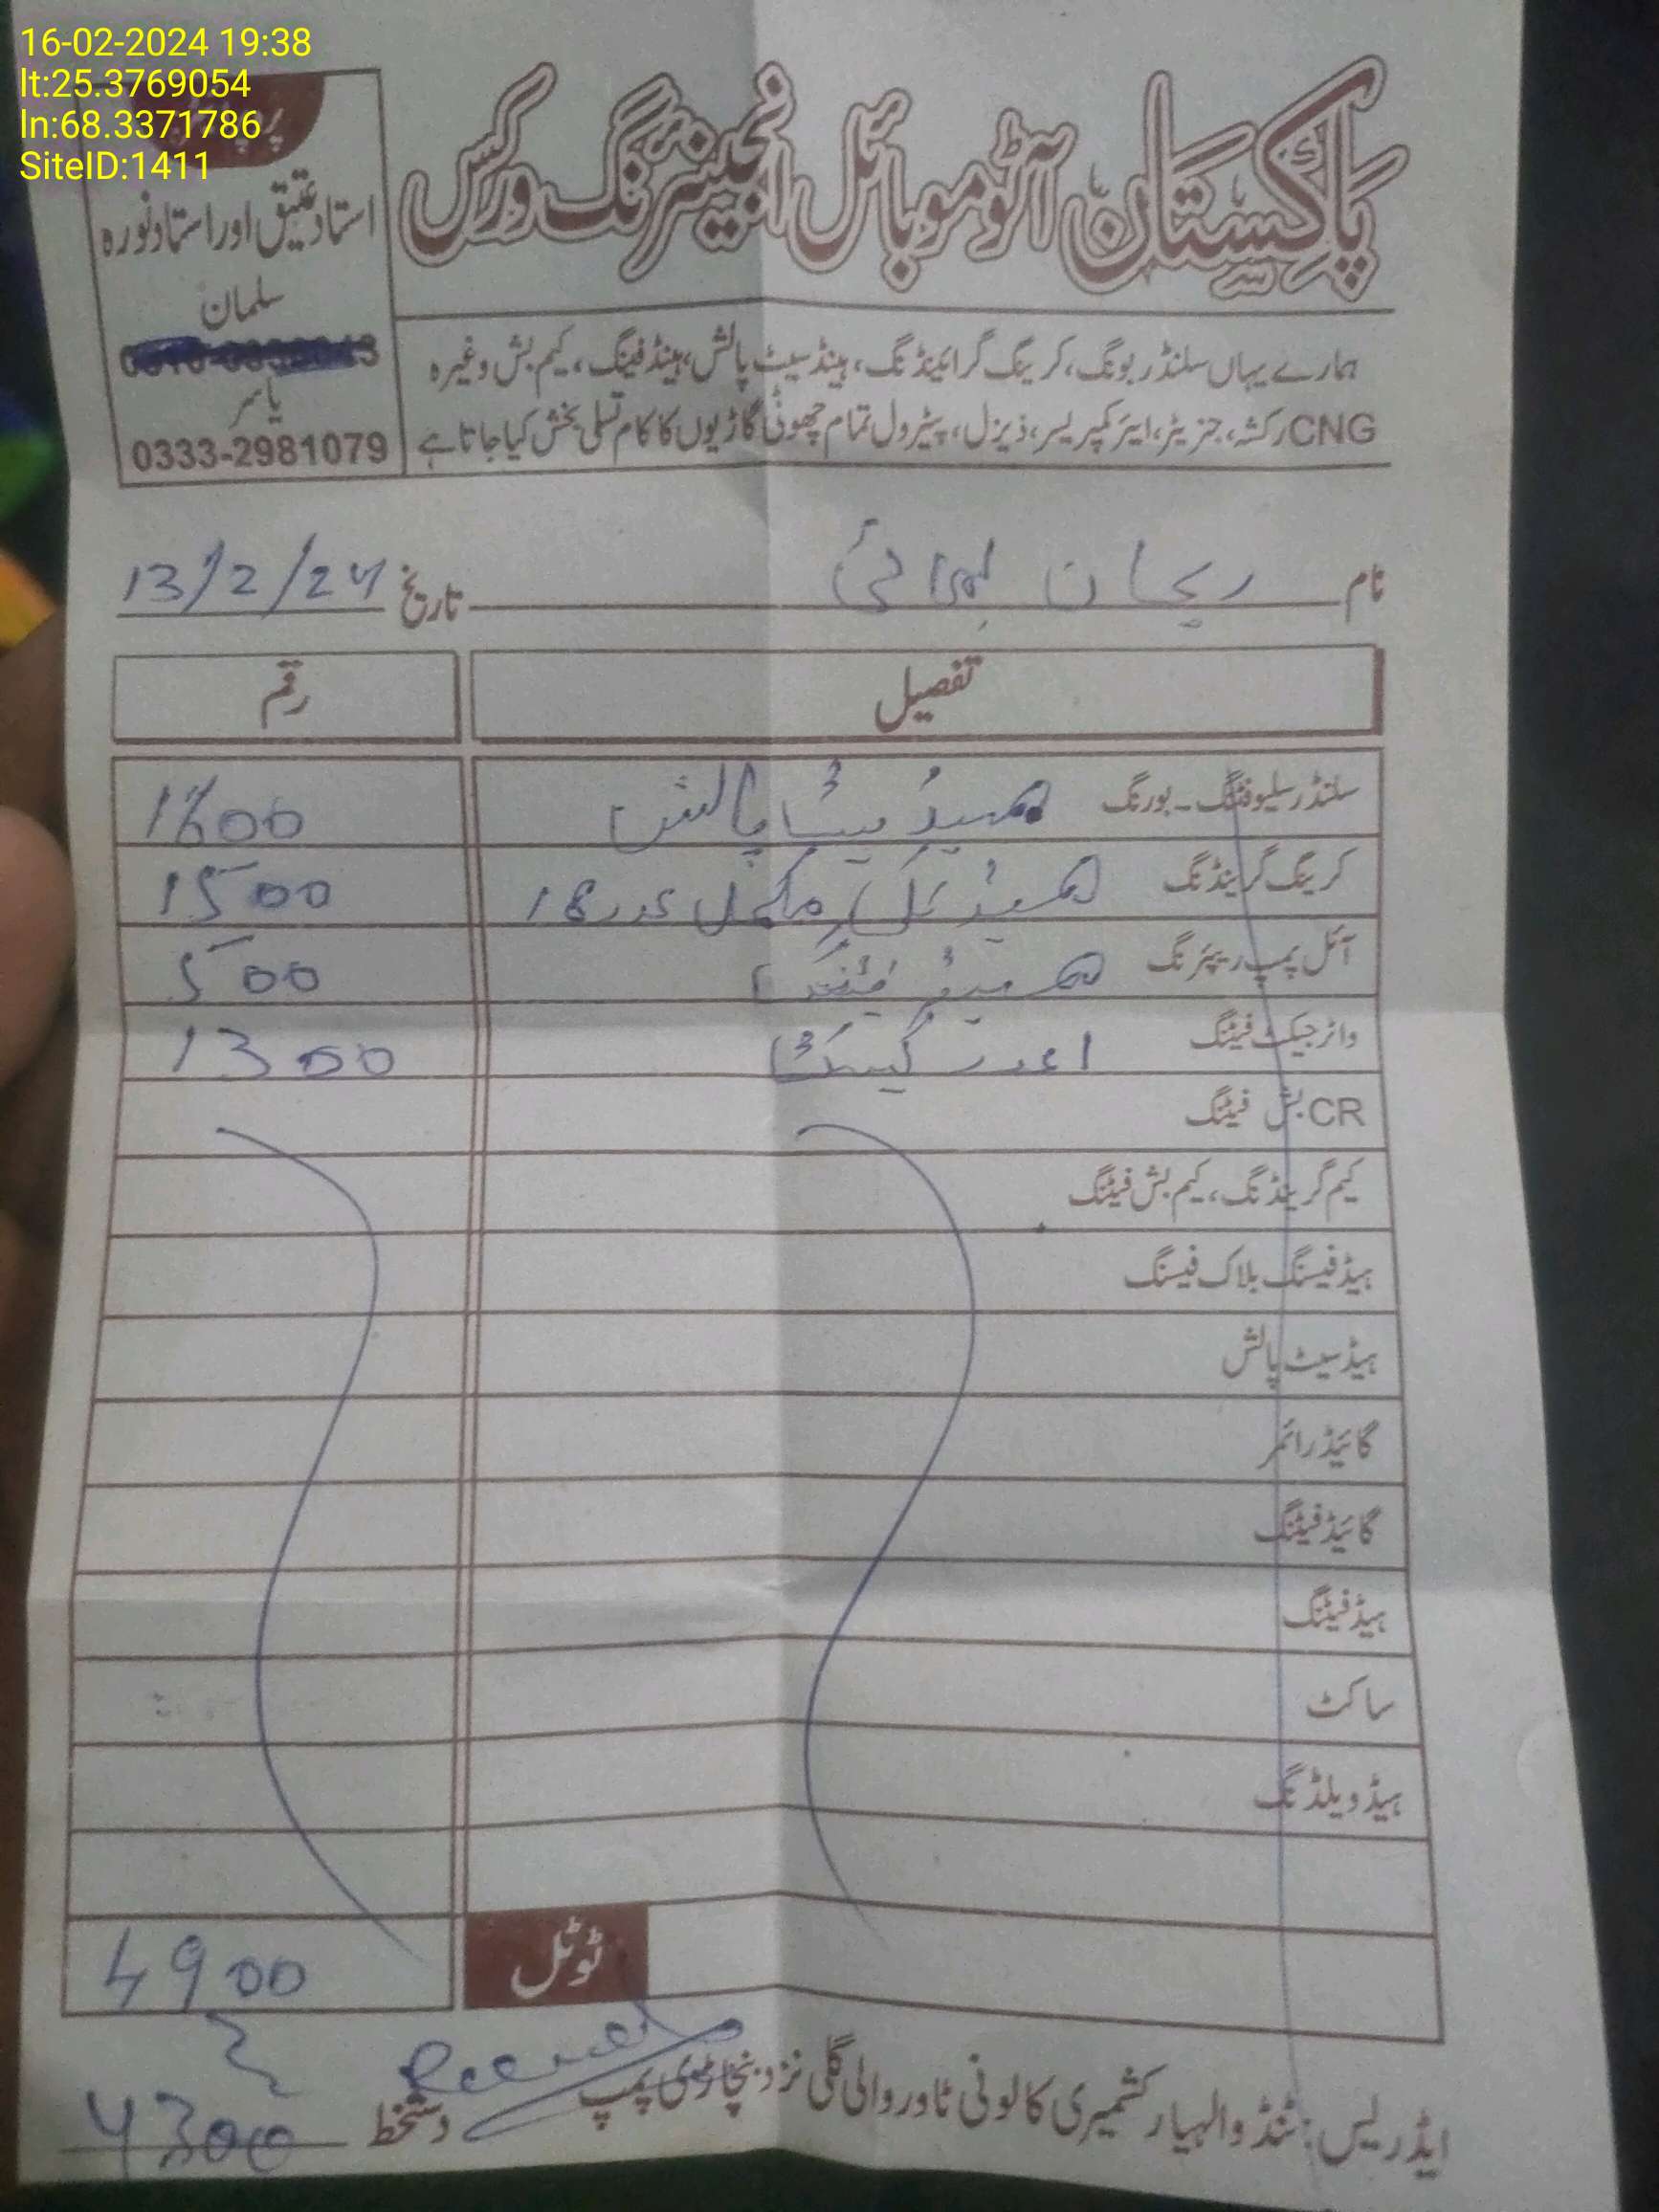 16-02-2024 19:38
lt:25.3769054
ln:68.3371786
SiteID:1411
پاکستان آٹوموبائل انجینئرنگ ورکس
استاد عتیق اور استاد نورہ
سلمان
یاسر
0333-2981079
ہمارے یہاں سلنڈر بونگ، کرینگ گرائینڈنگ، ہینڈسیٹ پالش، ہینڈفینگ، کیم بش وغیرہ
CNG رکشہ، جنریٹر، ایئر کمپریسر، ڈیزل، پیٹرول تمام چھوٹی گاڑیوں کا کام تسلی بخش کیا جاتا ہے
نام ریحان بھائی تاریخ 13/2/24
تفصیل رقم
سلنڈر سلیو فٹنگ - بورنگ ھیڈ سیٹ پالش 1600
کرینگ گرینڈنگ ھیڈ مکمل عدد 18 1500
آئل پمپ ریپئرنگ ھیڈ فٹنگ 500
واٹر جیکٹ فیٹنگ 1 عدد گیسکٹ 1300
CR بش فیٹنگ
کیم گرینڈنگ، کیم بش فیٹنگ
ہیڈ فیسنگ بلاک فیسنگ
ہیڈ سیٹ پالش
گائیڈ رائمر
گائیڈ فیٹنگ
ہیڈ فیٹنگ
ساکٹ
ہیڈ ویلڈنگ
ٹوٹل 4900
ایڈریس: ٹنڈوالہیار کشمیری کالونی ٹاور والی گلی نزد پمپ دستخط
4300